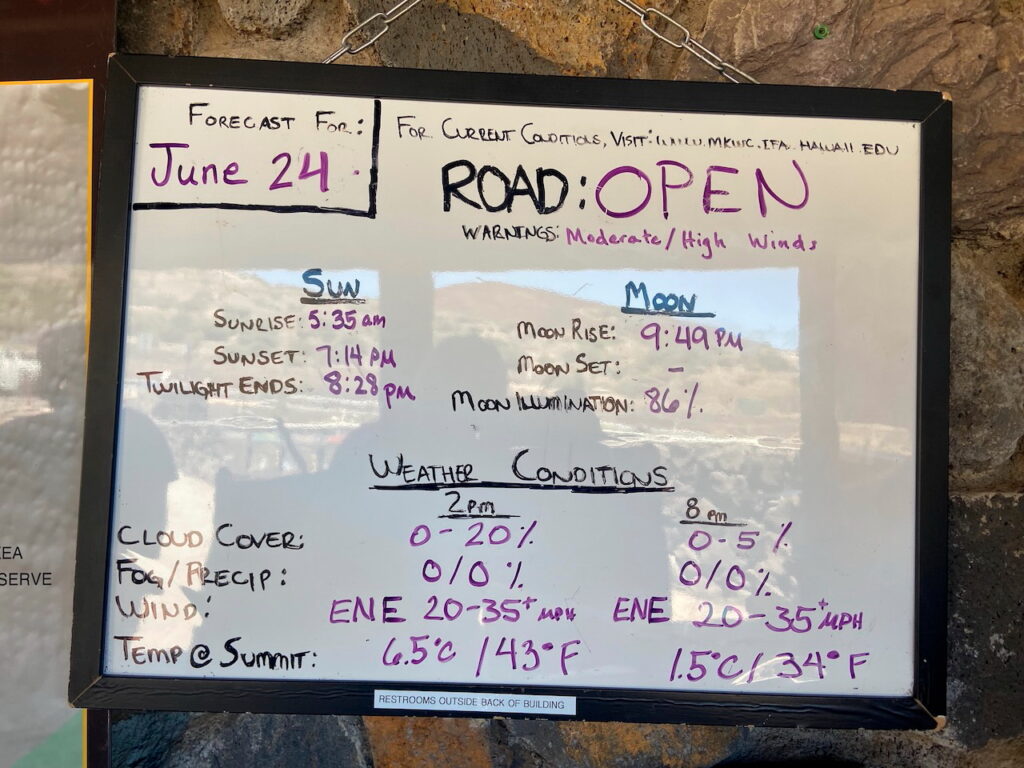 FORECAST FOR:
June 24
FOR CURRENT CONDITIONS, VISIT: WWW.MKWC.IFA.HAWAII.EDU
ROAD: OPEN
WARNINGS: Moderate/High Winds
SUN
SUNRISE: 5:35 am
SUNSET: 7:14 PM
TWILIGHT ENDS: 8:28 pm
MOON
MOON RISE: 9:49 PM
MOON SET: -
MOON ILLUMINATION: 86%
WEATHER CONDITIONS
2pm 8pm
CLOUD COVER: 0-20% 0-5%
FOG/PRECIP: 0/0% 0/0%
WIND: ENE 20-35+ MPH ENE 20-35+ MPH
TEMP @ SUMMIT: 6.5°C / 43°F 1.5°C / 34°F
RESTROOMS OUTSIDE BACK OF BUILDING